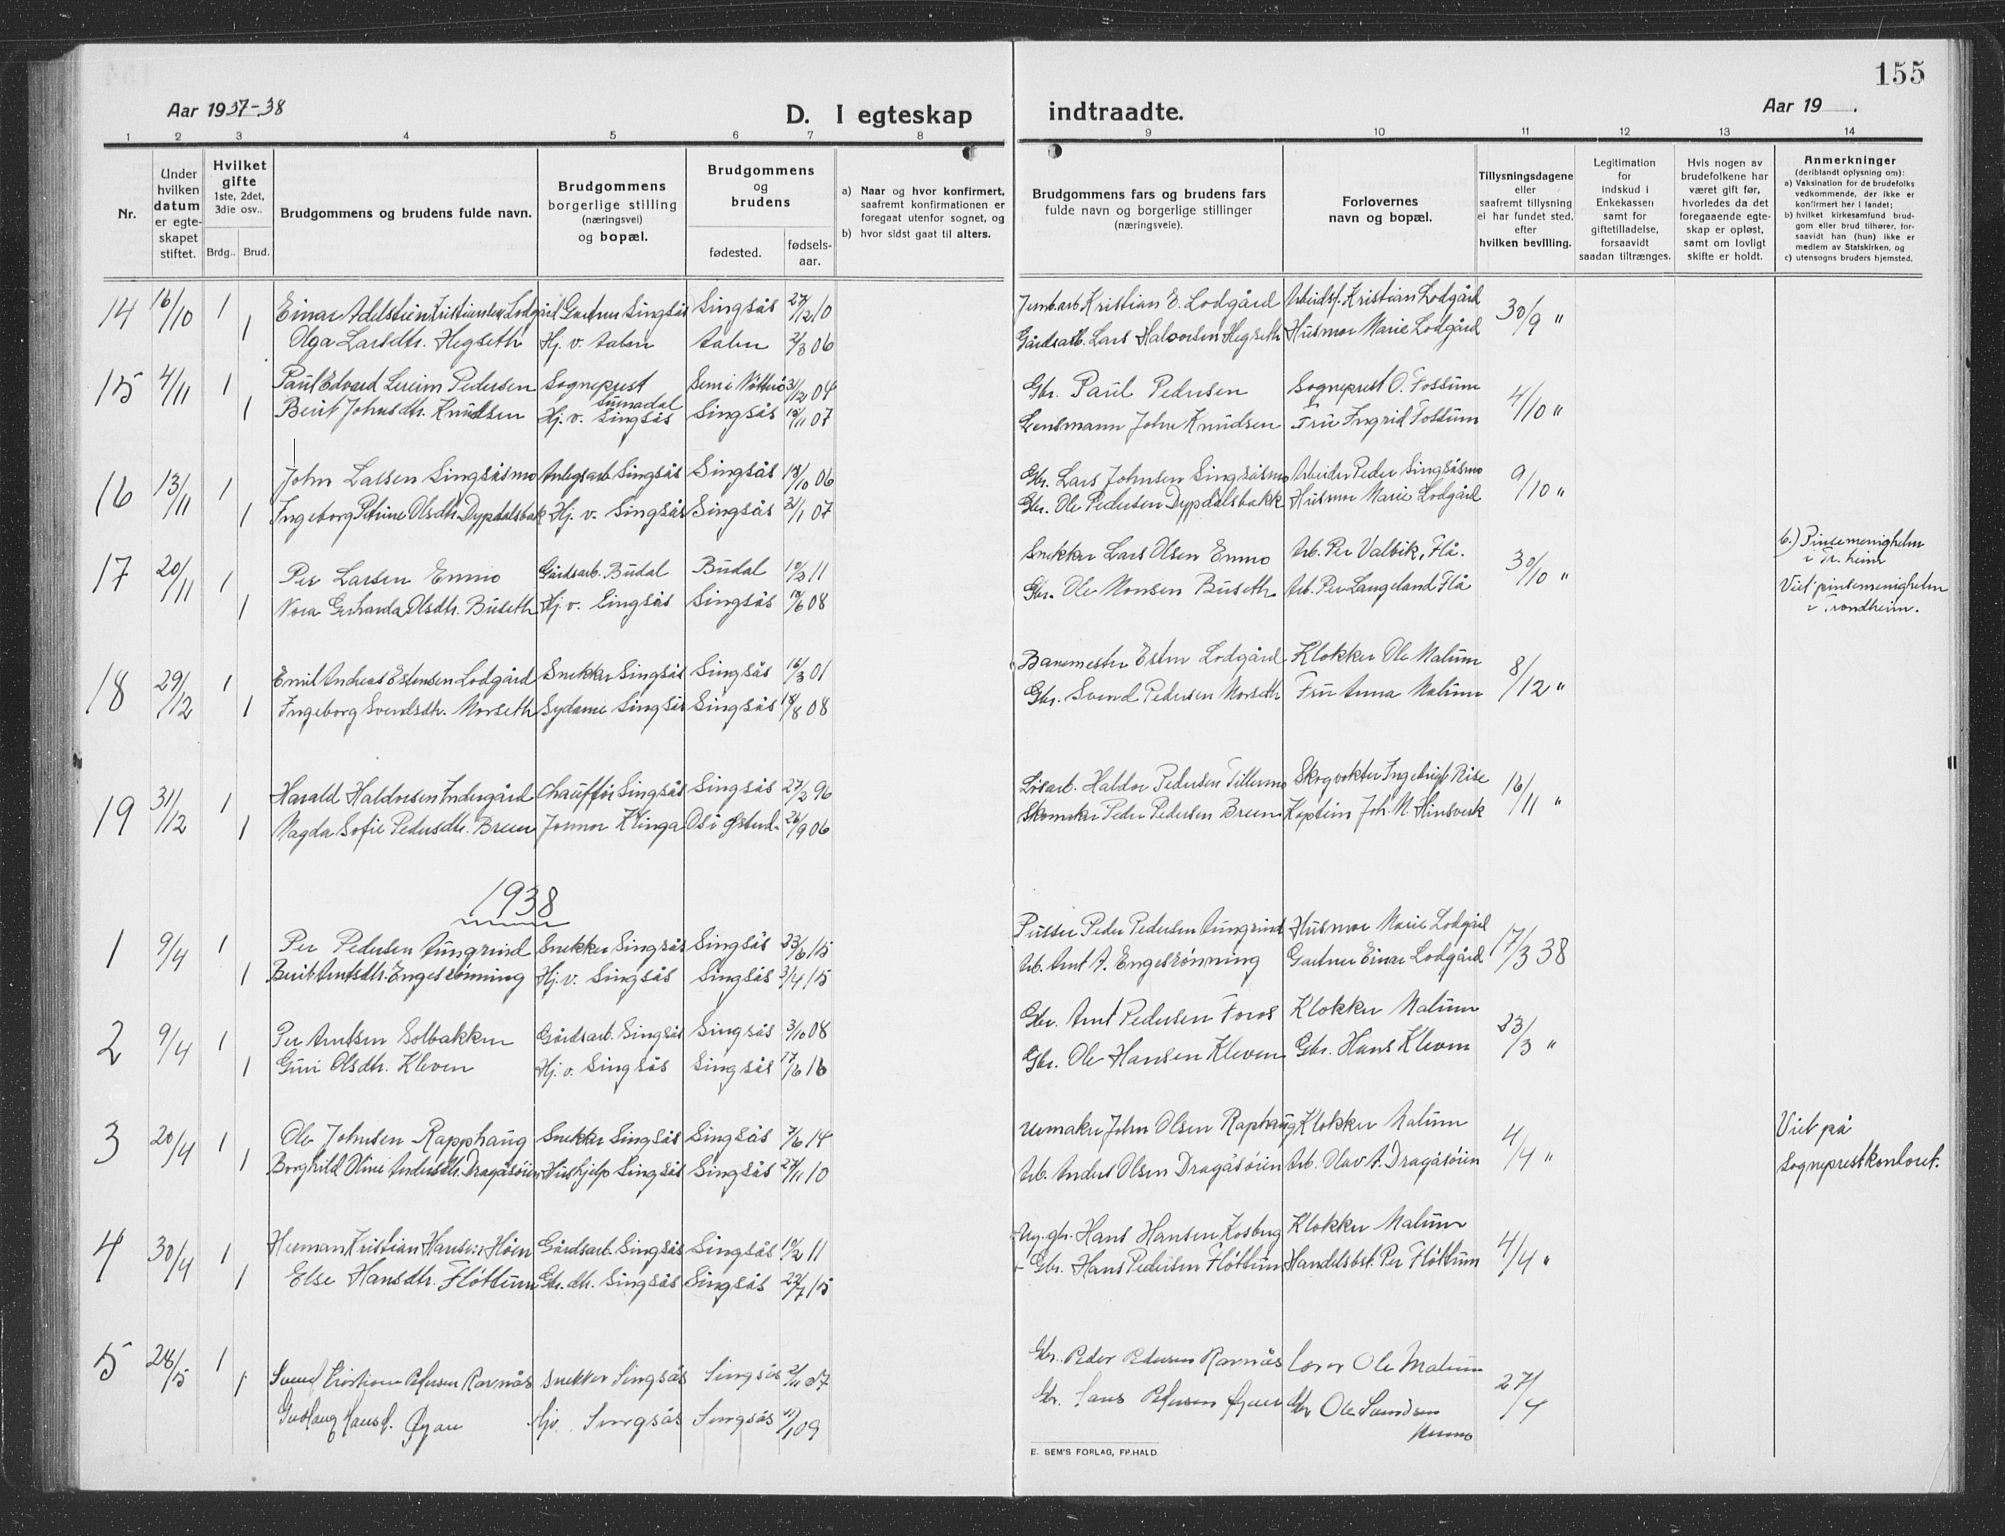 155
Aar 1937-38
D. I egteskap indtraadte.
Aar 19 .
1 2 3 4 5 6 7 8 9 10 11 12 13 14
Nr.
Under hvilken datum er egteskapet stiftet.
Hvilket gifte 1ste, 2det, 3die osv..
Brdg.. Brud.
Brudgommens og brudens fulde navn.
Brudgommens borgerlige stilling (næringsvei) og bopæl.
Brudgommens og brudens
fødested. fødselsaar.
a) Naar og hvor konfirmert, saafremt konfirmationen er foregaat utenfor sognet, og
b) hvor sidst gaat til alters.
Brudgommens fars og brudens fars fulde navn og borgerlige stillinger (næringsveie).
Forlovernes navn og bopæl.
Tillysningsdagene eller saafremt tillysning ei har fundet sted, efter hvilken bevilling.
Legitimation for indskud i Enkekassen samt for giftetilladelse, forsaavidt saadan tiltrænges.
Hvis nogen av brudefolkene har været gift før, hvorledes da det foregaaende egteskap er opløst, samt om lovligt skifte er holdt.
Anmerkninger (deriblandt oplysning om):
a) Vaksination for de brudefolks vedkommende, der ikke er konfirmert her i landet;
b) hvilket kirkesamfund brudgom eller brud tilhører, forsaavidt han (hun) ikke er medlem av Statskirken, og
c) utensogns bruders hjemsted.
14 16/10 1 Einar Adelstein Kristiansen Lodgård Gartner Singsås Singsås 27/12 10 Jernb.arb Kristian E. Lodgård Arbeidsf. Kristian Lodgård 30/9 "
1 Olga Larsdtr. Hegseth Hj. v. Aalen Aalen 2/3 06 Gårdsarb. Lars Halvorsen Hegseth Husmor Marie Lodgård
15 4/11 1 Paul Edvard Lereim Pedersen Sogneprest Surnadal Sem i Nøtterø 31/12 04 Gbr. Paul Pedersen Sogneprest O. Fossum 4/10 "
1 Berit Johnsdtr. Knudsen Hj. v. Singsås Singsås 12/11 07 Lensmann John Knudsen Fru Ingrid Fossum
16 13/11 1 John Larsen Singsåsmo Anlegsarb Singsås Singsås 17/10 06 Gbr. Lars Johnsen Singsåsmo Arbeider Peder Singsåsmo 9/10 "
1 Ingeborg Petrine Olsdtr. Dypdalsbakk Hj. v. Singsås Singsås 31/1 07 Gbr. Ole Pedersen Dypdalsbakk Husmor Marie Lodgård
17 20/11 1 Per Larsen Enmo Gårdsarb. Budal Budal 10/3 11 Snekker Lars Olsen Enmo Arb. Per Valbik, Flå. 30/10 " b.) Pinsemenigheten i Tr. heim
1 Nora Gerharda Olsdtr. Buseth Hj. v. Singsås Singsås 18/6 08 Gbr. Ole Monsen Buseth Arb. Per Langeland Flå Viet pinsemenigheten i Trondheim.
18 29/12 1 Emil Andreas Estensen Lodgård Snekker Singsås Singsås 16/3 01 Banemester Esten Lodgård Klokker Ole Malum 8/12 "
1 Ingeborg Svendsdtr. Morseth Sydame Singsås Singsås 18/8 08 Gbr. Svend Pedersen Morseth Fru Anna Malum
19 31/12 1 Harald Haldorsen Indergård Chauffør Singsås Singsås 27/2 96 Løsarb. Haldor Pedersen Tillermo Skogvokter Ingebrigt Rise 16/11 "
1 Magda Sofie Pedersdtr. Breen Jormor Klinga Os i Østerd. 26/9 06 Skomaker Peder Pedersen Breen Kaptein Joh. N. Hinsverk
1938
1 9/4 1 Per Pedersen Aungrind Snekker Singsås Singsås 23/6 15 Pusser Peder Pedersen Aungrind Husmor Marie Lodgård 17/3 38
1 Berit Arntsdtr. Engesrønning Hj. v. Singsås Singsås 3/4 15 Arb. Arnt A. Engesrønning Gartner Einar Lodgård
2 9/4 1 Per Arntsen Solbakken Gårdsarb. Singsås Singsås 3/10 08 Gbr. Arnt Pedersen Foros Klokker Malum 23/3 "
1 Guri Olsdtr. Kleven Hj. v. Singsås Singsås 17/6 16 Gbr. Ole Hansen Kleven Gbr. Hans Kleven
3 20/4 1 Ole Johnsen Rapphaug Snekker Singsås Singsås 7/6 14 Urmaker John Olsen Raphaug Klokker Malum 4/4 " Viet på
1 Borghild Oline Andersdtr. Dragåsøien Hushjelp Singsås Singsås 27/11 10 Arb. Anders Olsen Dragåsøien Arb. Olav A. Dragåsøien Sogneprestkontoret.
4 30/4 1 Herman Kristian Hansen Høen Gårdsarb. Singsås Singsås 10/2 11 Ug. gbr. Hans Hansen Kosberg Klokker Malum 4/4 "
1 Else Hansdtr. Fløttum Gbr. dtr. Singsås Singsås 22/7 15 Gbr. Hans Pedersen Fløttum Handelsbst. Per Fløttum
5 28/5 1 Svend Kristian Pedersen Ravnås snekker Singsås Singsås 2/11 07 Gbr. Peder Pedersen Ravnås Lærer Ole Malum 27/4
1 Øyan Hj v. Singsås Singsås 09 Gbr. Hans Pedersen Øyan Gbr Ole Svendsen
E. SEM'S FORLAG, FR.HALD